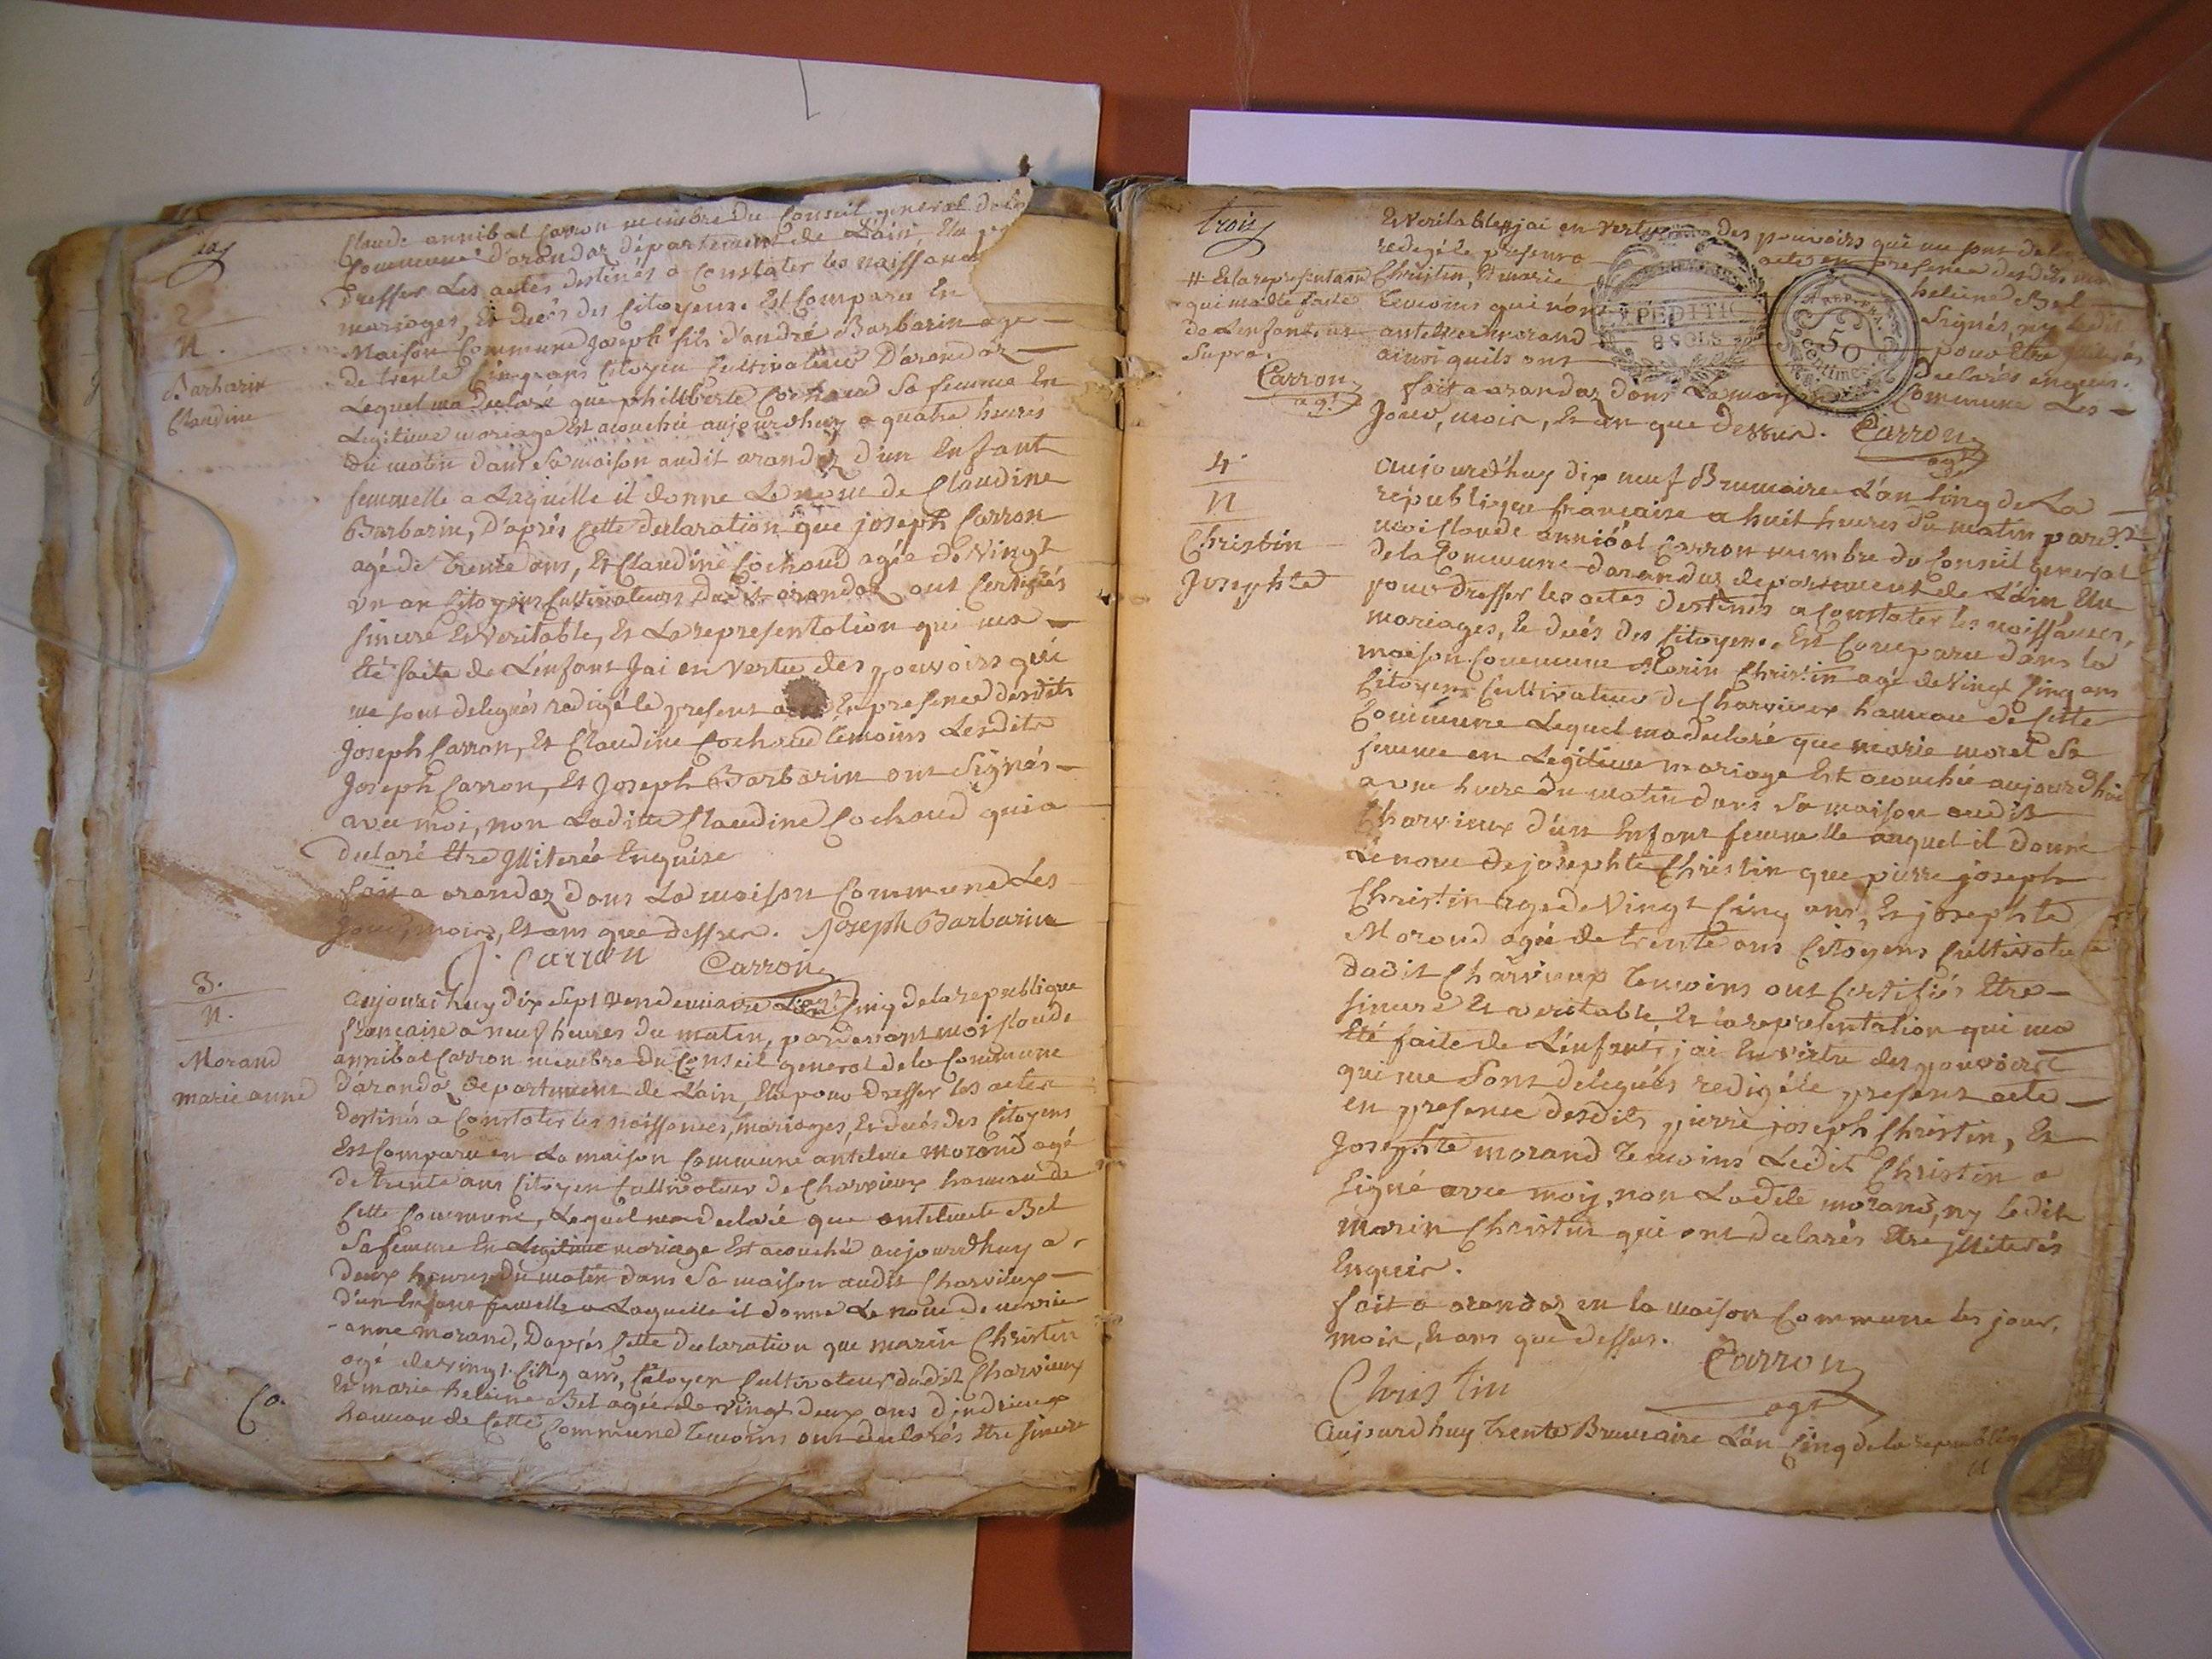 2
n.
Barbarin
Claudine
Claude annibal Carron membre du Conseil general de la
Commune d'arandaz département de L'ain, Elu
Dresser Les actes destinés a Constater les naissanc
mariages, et dués des Citoyens. Est Comparu En
Maison Commune Joseph fils d'andré Barbarin agé
de trente Cinq ans Citoyen Cultivateur D'arandaz
Lequel ma declaré que philiberte Cochoud Sa femme En
Legitime mariage Est acouchée aujourdhuy a quatre heures
du matin dans Sa maison audit arandaz d'un Enfant
femmelle a Laquelle il donne Le nom de Claudine
Barbarin, D'aprés Cette declaration que joseph Carron
agé de trente ans, Et Claudine Cochoud agée de Vingt
un an Citoyens Cultivateurs Dudit arandaz ont Certifiés
sincere Et Veritable, Et La representation qui ma
Eté faite de L'enfant Jai en Vertu des pouvoirs qui
me sont delegués redigé le present En presence desdits
Joseph Carron, Et Claudine Cochoud temoins Lesdits
Joseph Carron, Et Joseph Barbarin ont Signés
avec moi, non Laditte Claudine Cochoud qui a
declaré Etre Illiterée Enquise
fait a arandaz dans La maison Commune Les
Jour, mois, Et ans que dessus. Joseph Barbarin
J. Carron Carron
3.
n.
Morand
marie anne
Aujourdhuy dix Sept Vendemiaire L'an Cinq de la republique
francaise a neuf heures du matin, pardevant moi Claude
annibal Carron membre du Conseil general de la Commune
D'arandaz departement de L'ain, Elu pour Dresser les actes
destinés a Constater les naissances, mariages, Et dués des Citoyens
Est Comparu en La maison Commune antelme Morand agé
de trente ans Citoyen Cultivateur de Charvieux hameau de
Cette Commune, Lequel ma declaré que antelmete Bel
Sa femme En Legitime mariage Est acouchée aujourdhuy a
deux heures du matin dans Sa maison audit Charvieux
d'un Enfant femelle a Laquelle il donne Le nom de marie
anne Morand, Daprés Cette declaration que marin Christin
agé de vingt Cinq ans, Citoyen Cultivateur dudit Charvieux
Et marie helaine Bel agée de vingt deux ans d'indrieux
hameau de Cette Commune temoins ont declarés Etre sincere
trois
Et Veritable, jai en vertu des pouvoirs qui me sont
redigé le present acte en presence desdits
Christin, Et marie helaine Bel
temoins qui Signés, ny Ledit
antelme morand pour Etre
ainsi quils ont Declarés enquis.
# Et la representation
qui ma Eté faite
de L'enfant, ut
Supra.
Carron
agt
EXPEDITIO
8 SOLS
REP. FRA.
50
Centimes
fait a arandaz dans La maison Commune Les
Jour, mois, Et an que Dessus. Carron
agt
4.
n
Christin
Josephte
aujourdhuy dix neuf Brumaire L'an Cinq de La
republique francaise a huit heures du matin pardt
moi Claude annibal Carron membre du Conseil general
de la Commune darandaz departement de L'ain Elu
pour Dresser les actes destinés a Constater les naissances,
mariages, Et dués des Citoyens. Est Comparu dans La
maison Commune Marin Christin agé de Vingt Cinq ans
Citoyen Cultivateur de Charvieux hameau de Cette
Commune Lequel ma declaré que marie morel Sa
femme en Legitime mariage Est acouchée aujourdhui
a une heure du matin dans Sa maison audit
Charvieux d'un Enfant femmelle auquel il donne
Le nom de josephte Christin que pierre joseph
Christin agé de Vingt Cinq ans, Et josephte
Morand agée de trente ans Citoyens Cultivateurs
Dudit Charvieux temoins ont Certifiés Etre
sincere Et veritable, Et la representation qui ma
Eté faite de L'enfant, jai En vertu des pouvoirs
qui me Sont delegués redigé le present acte
en presence desdits pierre joseph Christin, Et
Josephte morand temoins Ledit Christin a
Signé avec moy, non Ladite morand, ny Ledit
marin Christin qui ont declarés Etre Illiterés
Enquis.
fait a arandaz en la maison Commune les jour,
mois, Et ans que dessus.
Carron
Christin
agt
Aujourdhuy trente Brumaire L'an Cinq de la republique